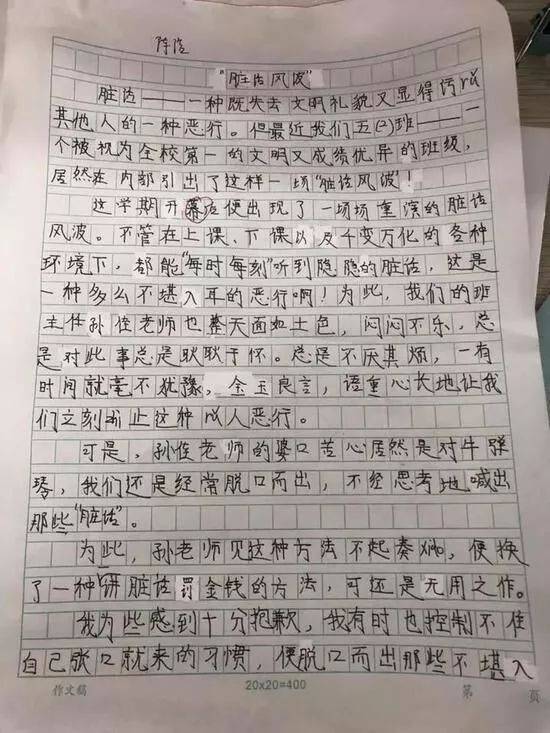 陈浩
"脏话风波"
脏话——一种既失去文明礼貌又显得污ru
其他人的一种恶行。但最近我们五(2)班——一
个被视为全校第一的文明又成绩优异的班级,
居然在内部引出了这样一场"脏话风波"!
这学期开幕后便出现了一场场重演的脏话
风波。不管在上课、下课以及千变万化的各种
环境下,都能"每时每刻"听到隐隐的脏话,这是
一种多么不堪入耳的恶行啊!为此,我们的班
主体孙佳老师也蔡天面如土色,闷闷不乐,总
是对此事总是耿耿于怀。总是不厌其烦,一有
时间就毫不犹豫,金玉良言,语重心长地让我
们立刻止这种以人恶行。
可是,孙佳老师的婆口苦心居然是对牛弹
琴,我们还是经常脱口而出,不经思考地喊出
那些"脏话"。
为此,孙老师见这种方法不起奏,便换
了一种"讲脏话罚金钱的方法,可还是无用之作。
我为些感到十分抱歉,我有时也控制不住
自己张口就来的习惯,便脱口而出那些不堪入
作文稿 20x20=400 第 页